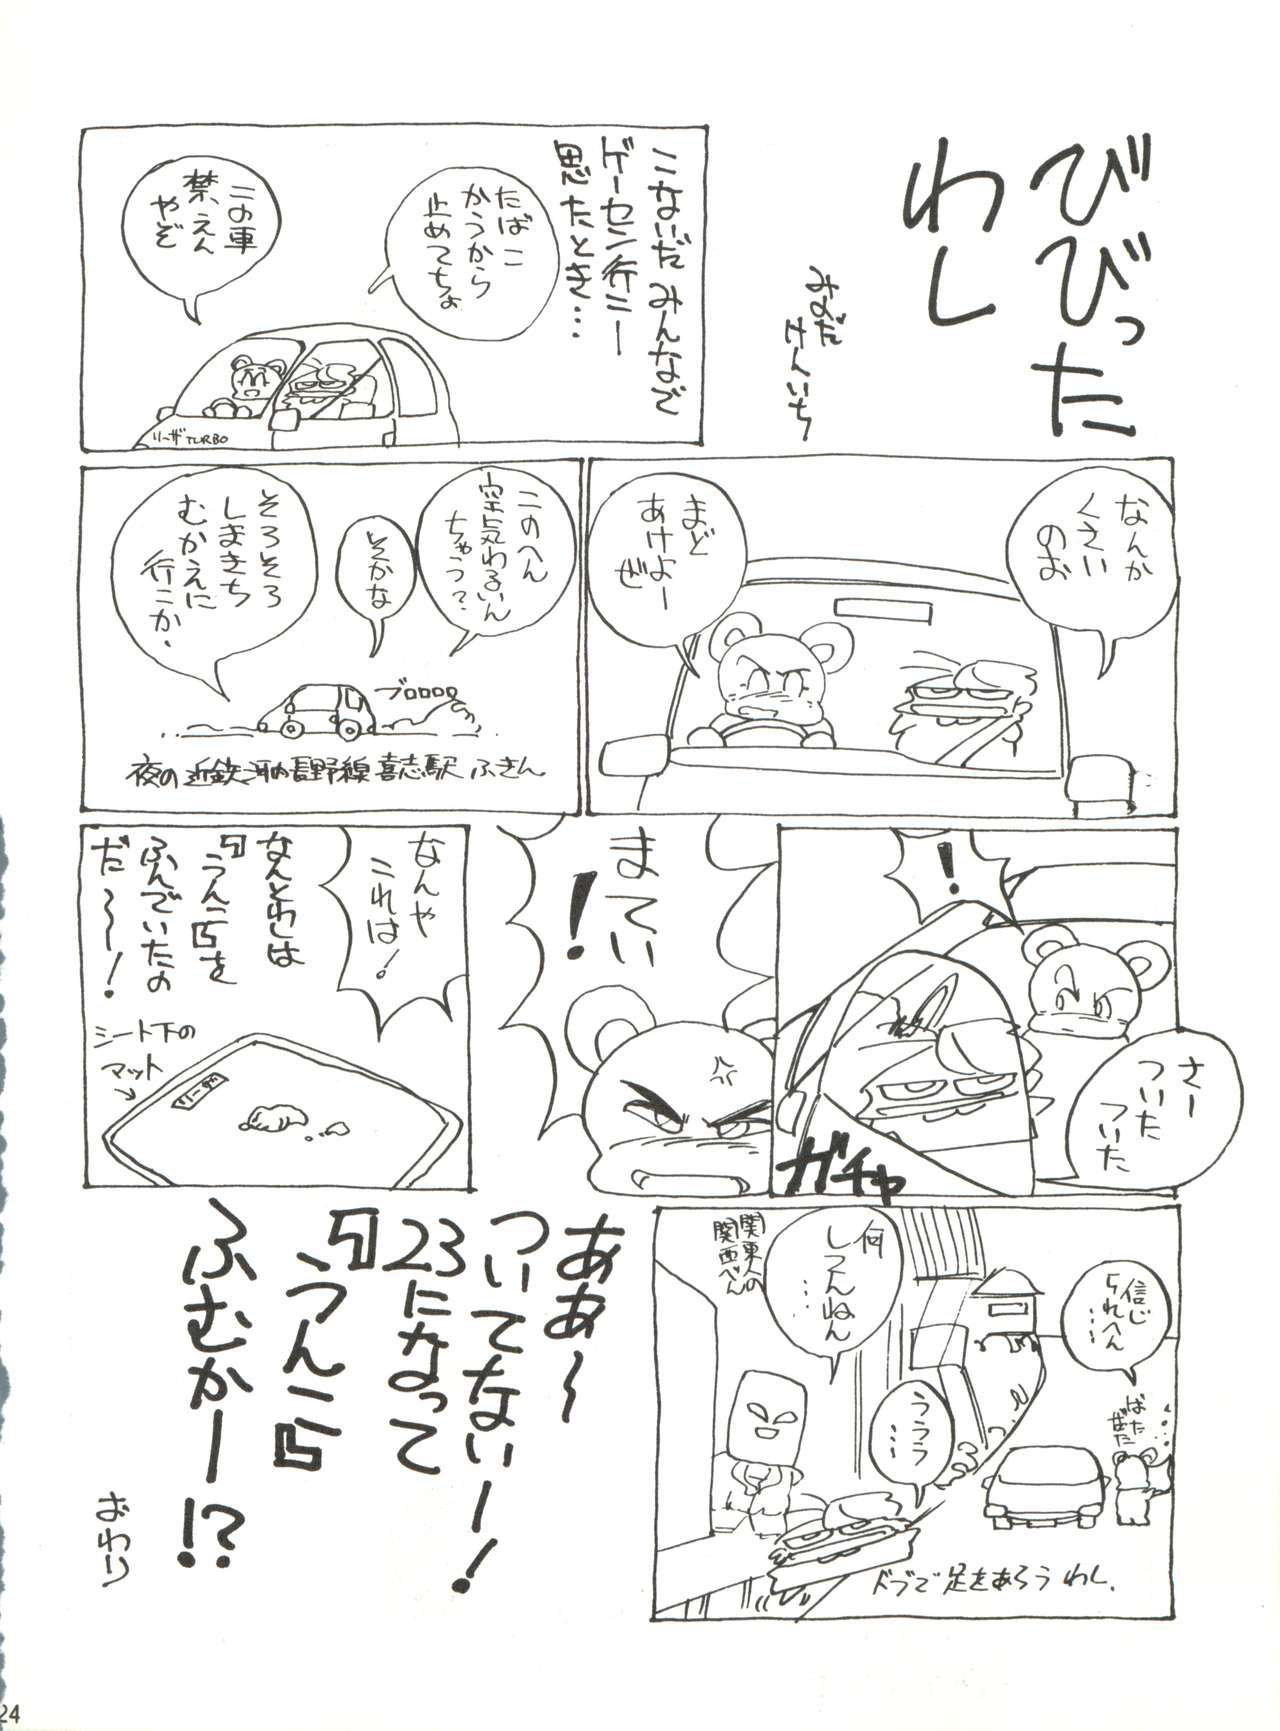 びびった
わし
みのだ
けんいち
こないだ みんなで
ゲーセン行こー
思たとき…
たばこ
かうから
止めてちょ
この車
禁えん
やぞ
リーザ TURBO
なんか
くさい
のお
まど
あけよー
ぜ
このへん
空気わるいん
ちゃう?
そかな
そろそろ
しまきち
むかえに
行こか・
ブロロロロ
夜の近鉄河内長野線喜志駅ふきん
!
さー
ついた
ついた
ガチャ
まてい
!
なんや
これは!
なんとわしは
『うんこ』を
ふんでいたの
だ〜〜!
シート下の
マット
リーザ
信じ
られへん
……
ばた
ばた
何
してんねん
……
関東人の
関西べん
ううう
……
ドブで足をあらうわし.
ああ〜
ついてない—!
23になって
『うんこ』
ふむか—!?
おわり
24